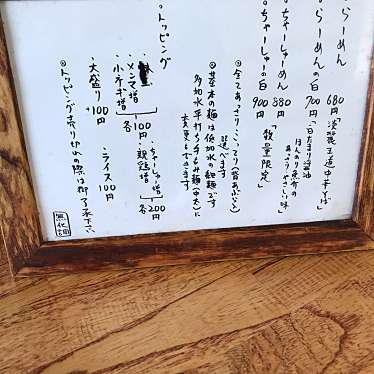 らーめん 680円「淡麗王道中華そば」
らーめんの白 700円「白たまり醤油
ほんのり魚介の
あっさりやさしい味」
ちゃーしゅーめん 880円
ちゃーしゅーの白 900円「数量限定」
◎全てあっさり・こってり(背あぶら)
選べます
◎基本の麺は低加水の細麺です
多加水平打ち手もみ麺(中太)に
変更もできます
◎トッピング
・メンマ増
・小ネギ増 各100円
・ちゃーしゅー増
・観穏増 各200円
・大盛り+100円
・ライス100円
◎トッピング売り切れの際は御了承下さい
無化調